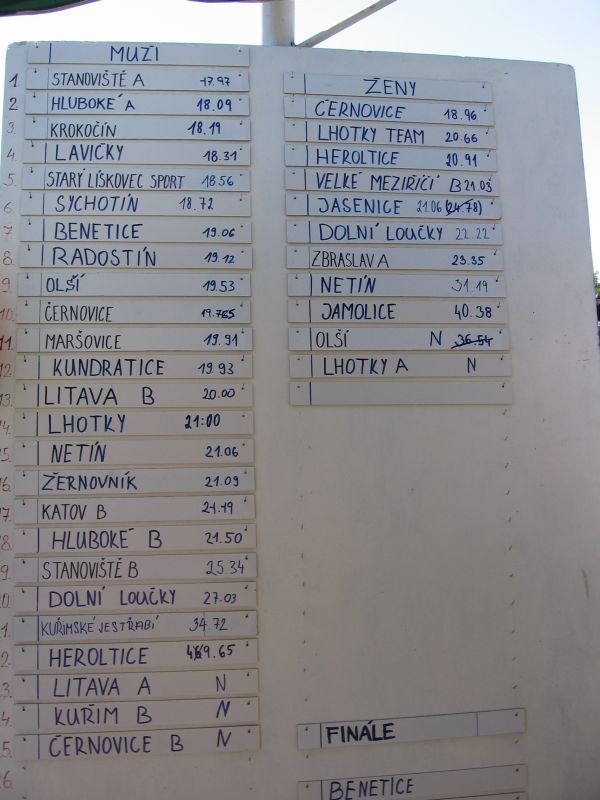 MUŽI
1. STANOVIŠTĚ A 17.97
2 HLUBOKÉ A 18.09
3. KROKOČÍN 18.19
4. LAVIČKY 18.31
5. STARÝ LÍSKOVEC SPORT 18.56
6. SYCHOTÍN 18.72
7 BENETICE 19.06
8. RADOSTÍN 19.12
9 OLŠÍ 19.53
10. ČERNOVICE
11. MARŠOVICE 19.91
12. KUNDRATICE 19.93
13. LITAVA B 20.00
14. LHOTKY 21:00
15. NETÍN 21.06
16. ŽERNOVNÍK 21.09
17. KATOV B
18. HLUBOKÉ B 21.50
19. STANOVIŠTĚ B 25.34
20. DOLNÍ LOUČKY 27.03
1. KUŘIMSKÉ JESTŘABÍ 34.72
2. HEROLTICE
3. LITAVA A N
4. KUŘIM B N
5. ČERNOVICE B N
26.
ŽENY
ČERNOVICE 18.96
LHOTKY TEAM 20.66
HEROLTICE 20.91
VELKÉ MEZIŘÍČÍ B 21.03
JASENICE 21.06 (24.78)
DOLNÍ LOUČKY 22.22
ZBRASLAV A 23.35
NETÍN 31.19
JAMOLICE 40.38
OLŠÍ N 36.54
LHOTKY A N
FINÁLE
BENETICE